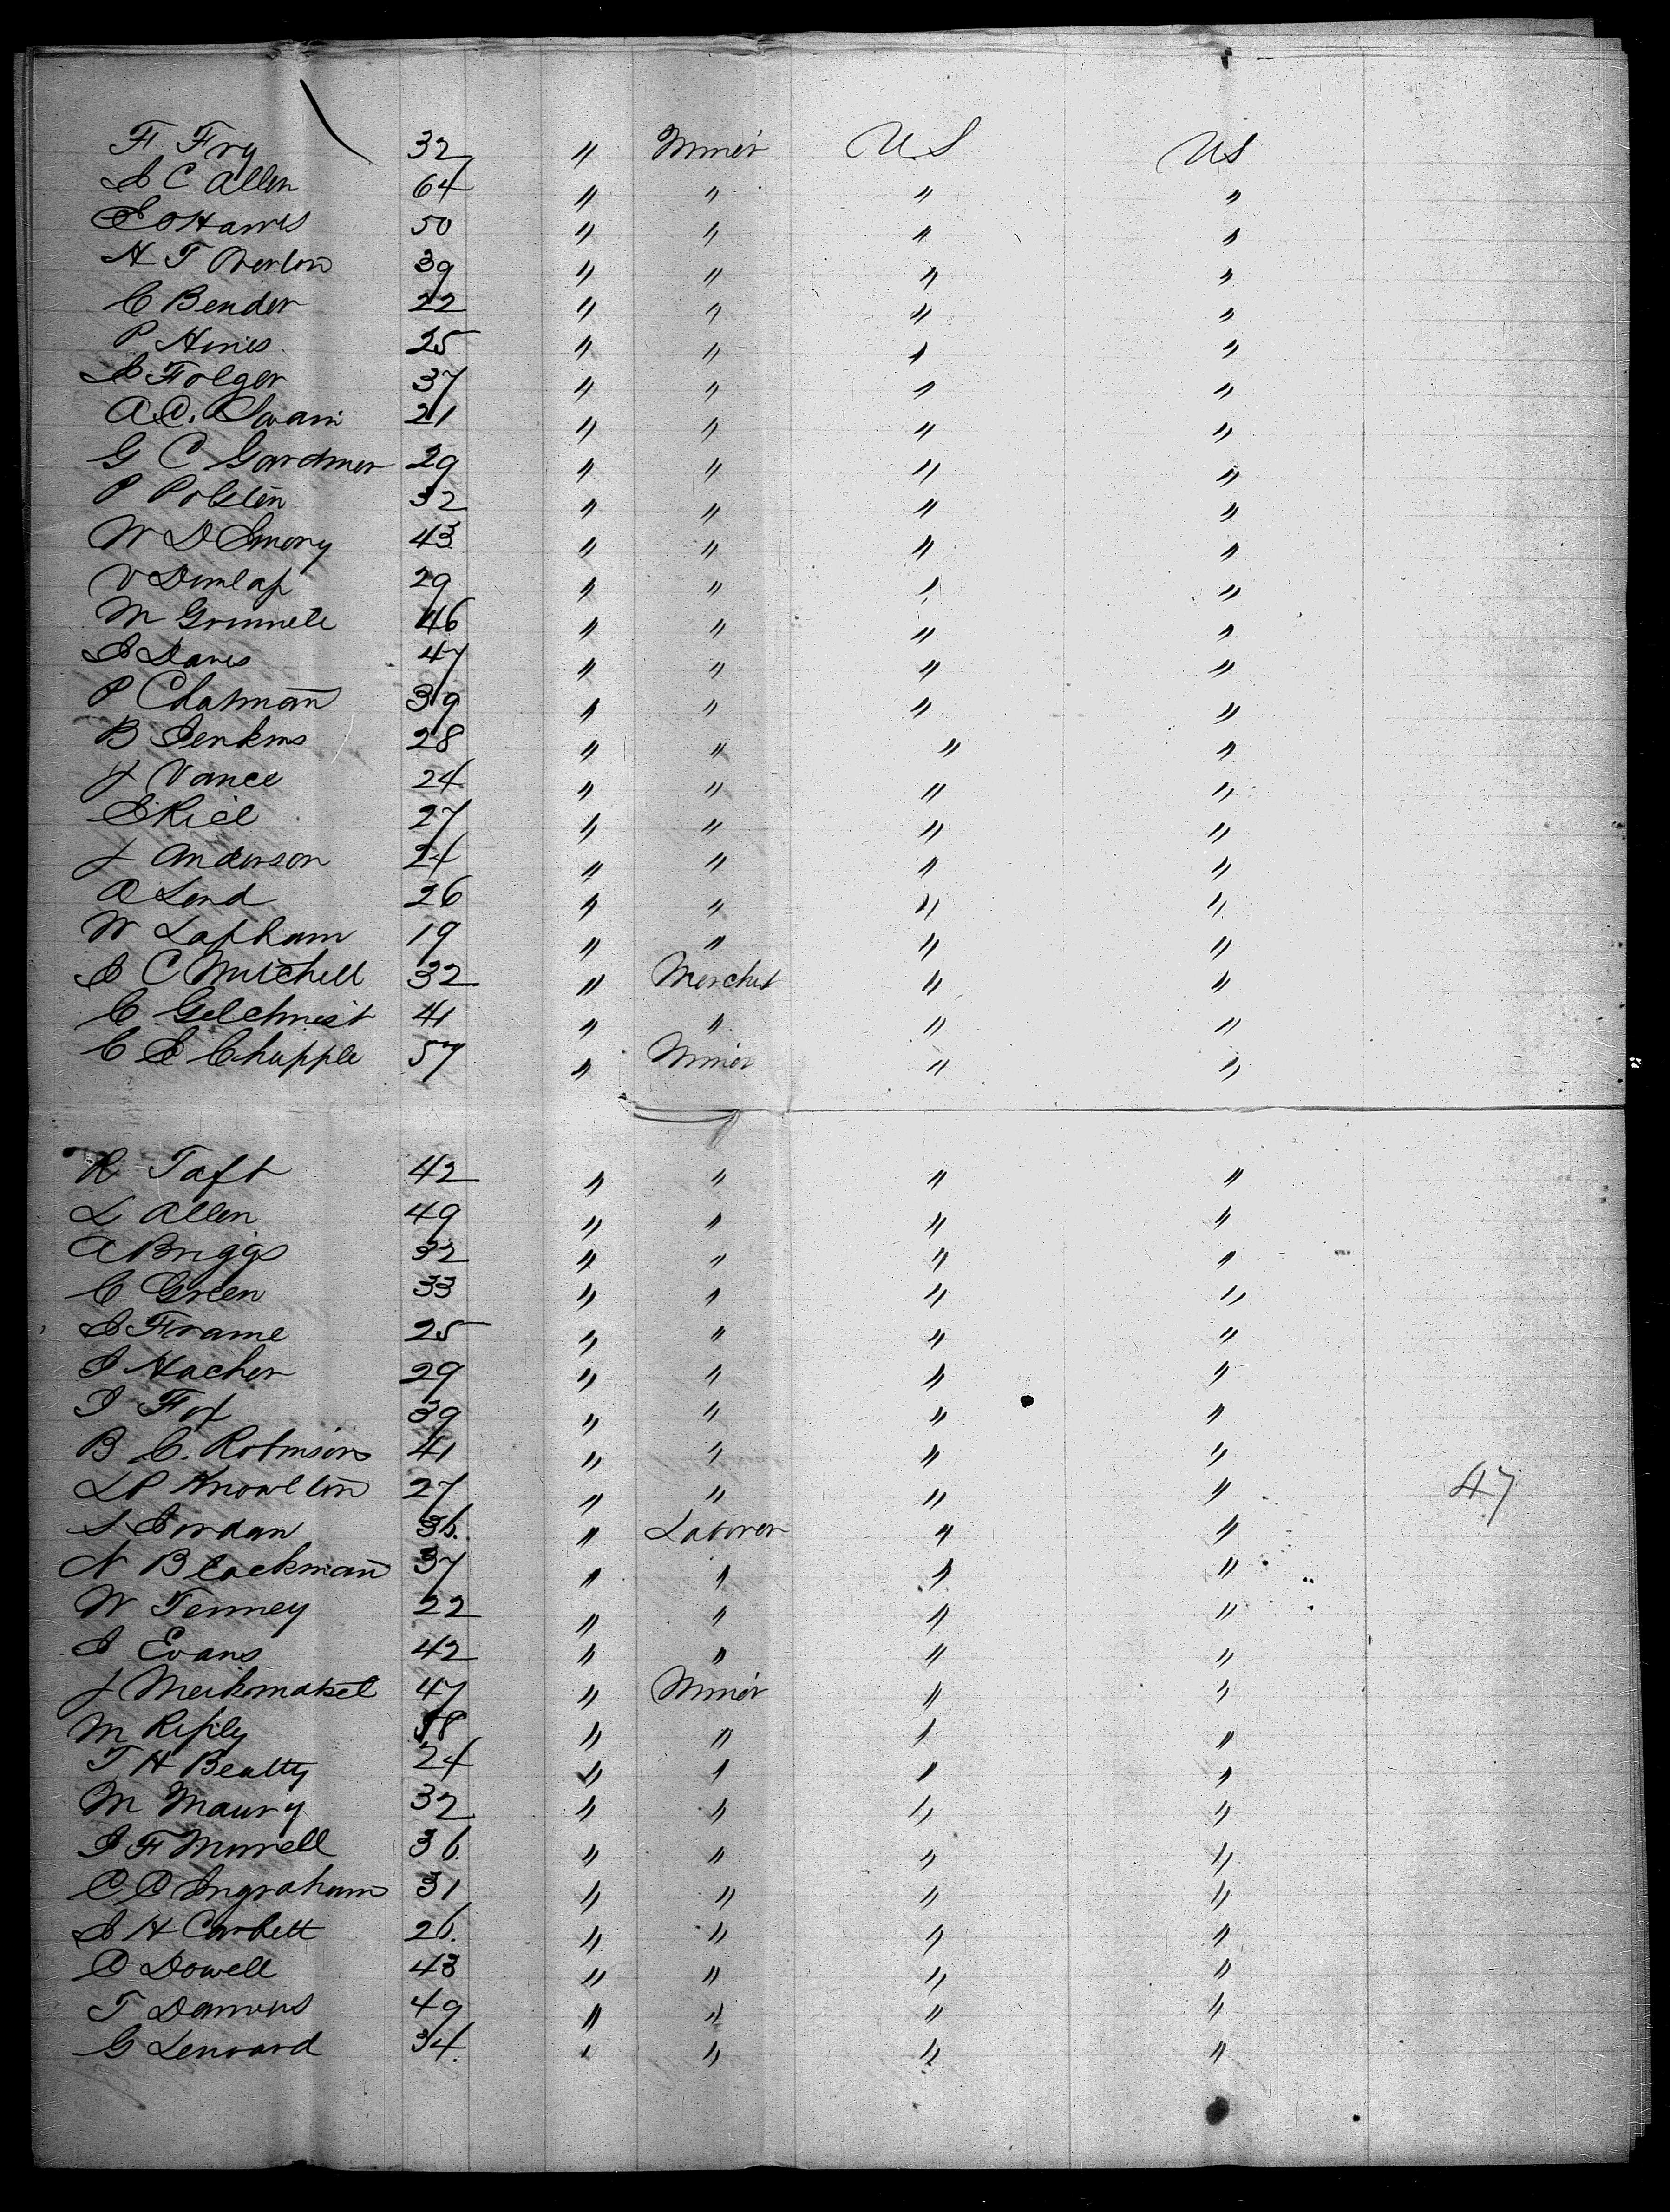 F. Fry 32 " Miner U.S US
S C Allen 64 " " " "
E O Harris 50 " " " "
H T Overton 39 " " " "
C Bender 22 " " " "
P Hines 25 " " " "
S Folger 37 " " " "
A.A. Swain 21 " " " "
G C Gardner 29 " " " "
P 32 " " " "
W D Emory 43 " " " "
V Dunlap 29 " " " "
M 46 " " " "
S Davis 47 " " " "
P Chatman 39 " " " "
B Jenkins 28 " " " "
J Vance 24 " " " "
27 " " " "
J Anderson 24 " " " "
A 26 " " " "
W Lapham 19 " " " "
S C Mitchell 32 " Mercht " "
C Gelchrist 41 " " " "
C S Chapple 57 " Miner " "
R Taft 42 " " " "
L Allen 49 " " " "
A Briggs 32 " " " "
C Green 33 " " " "
S Frame 25 " " " "
I Hacher 29 " " " "
I Fox 39 " " " "
B C. Robinson 41 " " " "
L P Knowlton 27 " " " " 47
S Jordan 36. " Laborer " "
N Blackman 37 " " " "
W Tenney 22 " " " "
I Evans 42 " " " "
J 47 " Miner " "
M Ripley 38 " " " "
T H Beatty 24 " " " "
M Maury 32 " " " "
I F Murrell 36 " " " "
C C Ingraham 31 " " " "
S H Corbett 26. " " " "
O Dowell 43 " " " "
T 49 " " " "
G Lenoard 34. " " " "